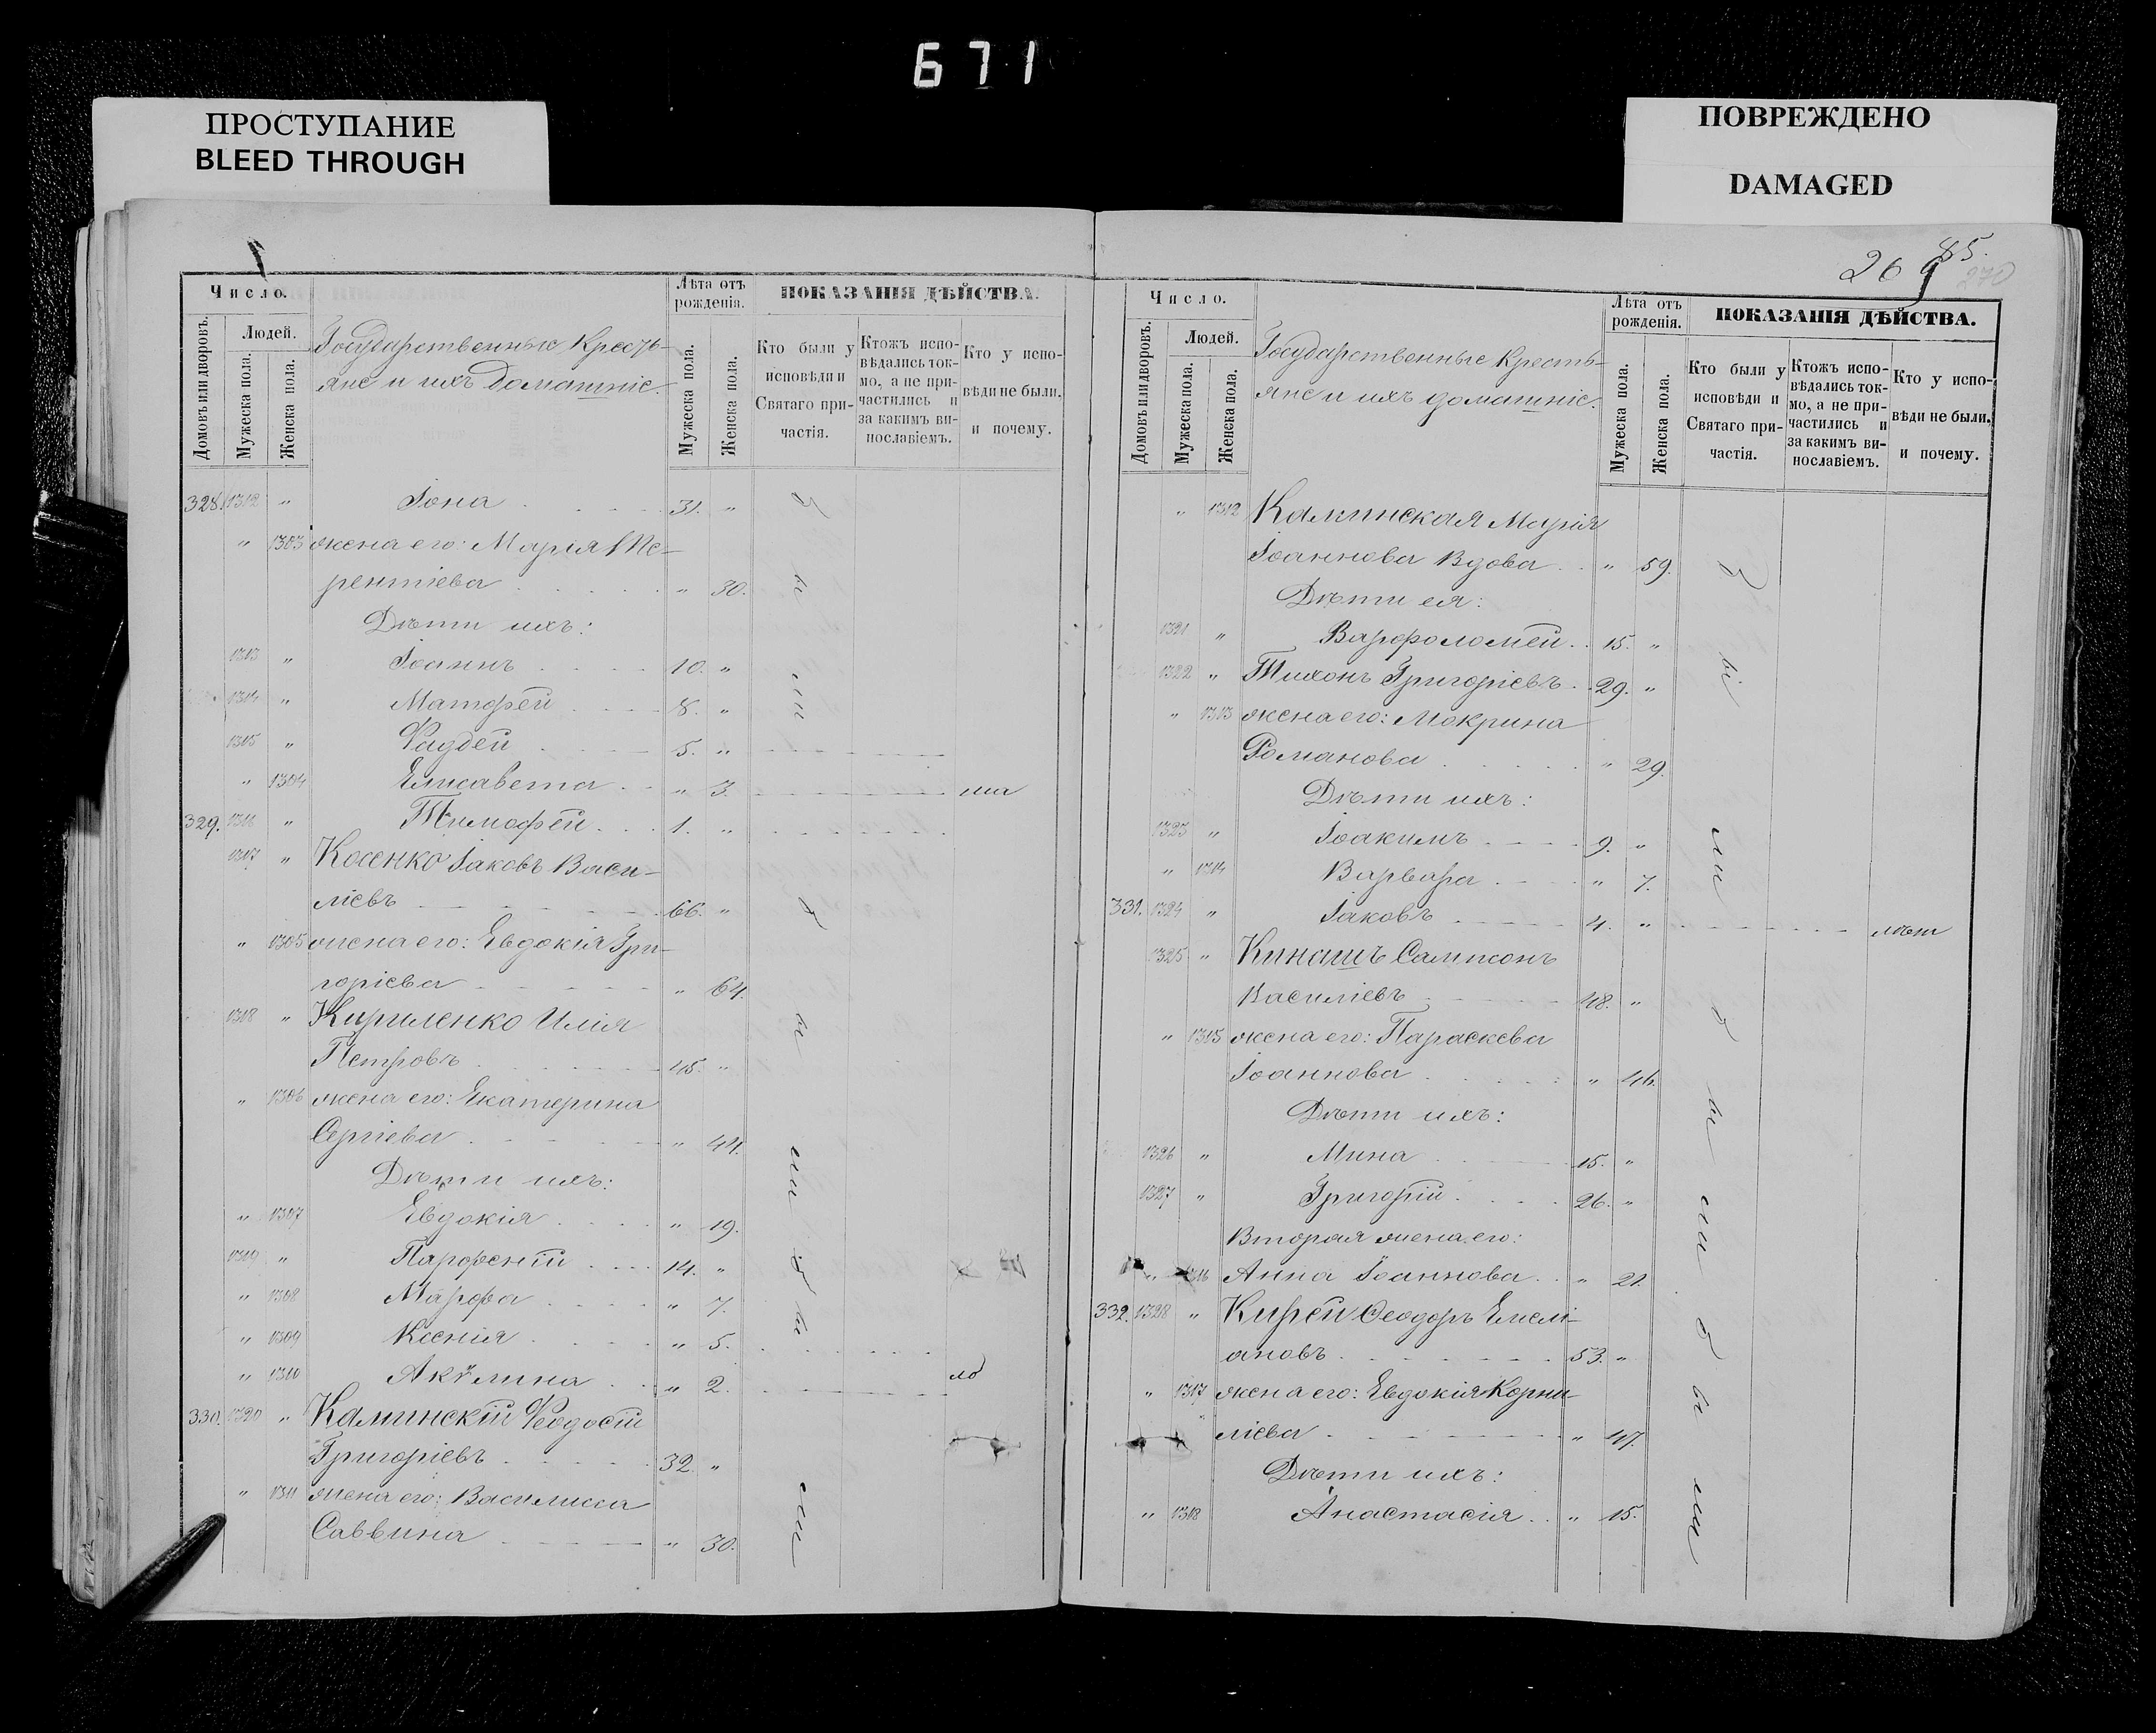 671
ПРОСТУПАНИЕ
BLEED THROUGH
ПОВРЕЖДЕНО
DAMAGED
Число.
Домовъ или дворовъ.
Людей.
Мужеска пола.
Женска пола.
Государственные Кресть-
яне и ихъ домашніе.
Лѣта отъ
рожденія.
Мужеска пола.
Женска пола.
ПОКАЗАНІЯ ДѢЙСТВА.
Кто были у
исповѣди и
Святаго при-
частія.
Ктожъ испо-
вѣдались ток-
мо, а не при-
частились и
за какимъ ви-
нославіемъ.
Кто у испо-
вѣди не были,
и почему.
328. 1312 " Іона 31. "
" 1303 жена его: Марія
рентіева " 30.
Дѣти ихъ:
1313 " Іоаннъ 10. "
1314 " Матѳей 8. "
1315 " Ѳаддей 5. "
" 1304 Елисавета " 3.
329. 1316 " Тимоѳей 1. "
1317 " Косенко Іаковъ Васи-
ліевъ 66. "
" 1305 жена его: Евдокія Гри-
горіева " 64.
1318 " Кириленко Илія
Петровъ 45. "
" 1306 жена его: Екатерина
Сергіева " 44.
Дѣти ихъ:
" 1307 Евдокія " 19.
1319 " Парѳеній 14. "
" 1308 Марѳа " 7.
" 1309 Ксенія " 5.
" 1310 Акѵлина " 2.
330. 1320 " Калинскій Ѳеодосій
Григоріевъ 32. "
" 1311 жена его: Василисса
Саввина " 30.
85.
269
270
Число.
Домовъ или дворовъ.
Людей.
Мужеска пола.
Женска пола.
Государственные Кресть-
яне и ихъ домашніе.
Лѣта отъ
рожденія.
Мужеска пола.
Женска пола.
ПОКАЗАНІЯ ДѢЙСТВА.
Кто были у
исповѣди и
Святаго при-
частія.
Ктожъ испо-
вѣдались ток-
мо, а не при-
частились и
за какимъ ви-
нославіемъ.
Кто у испо-
вѣди не были,
и почему.
" 1312 Калинская Марія
Іоаннова Вдова " 59.
Дѣти ея:
1321 " Варѳоломей 15. "
1322 " Тихонъ Григоріевъ 29. "
" 1313 жена его: Мокрина
Романова " 29.
Дѣти ихъ:
1323 " Іоакимъ 9. "
" 1314 Варвара " 7.
331. 1324 " Іаковъ 4. " лѣт
1325 " Кинашъ Сампсонъ
Василіевъ 48. "
" 1315 жена его: Параскева
Іоаннова " 46.
Дѣти ихъ:
1326 " Мина 15. "
1327 " Григорій 26. "
Вторая жена его:
" 1316 Анна Іоаннова " 21.
332. 1328 " Кирей Ѳеодоръ Емелі-
ановъ 53. "
" 1317 жена его: Евдокія Корни-
ліева " 47.
Дѣти ихъ:
" 1318 Анастасія " 15.